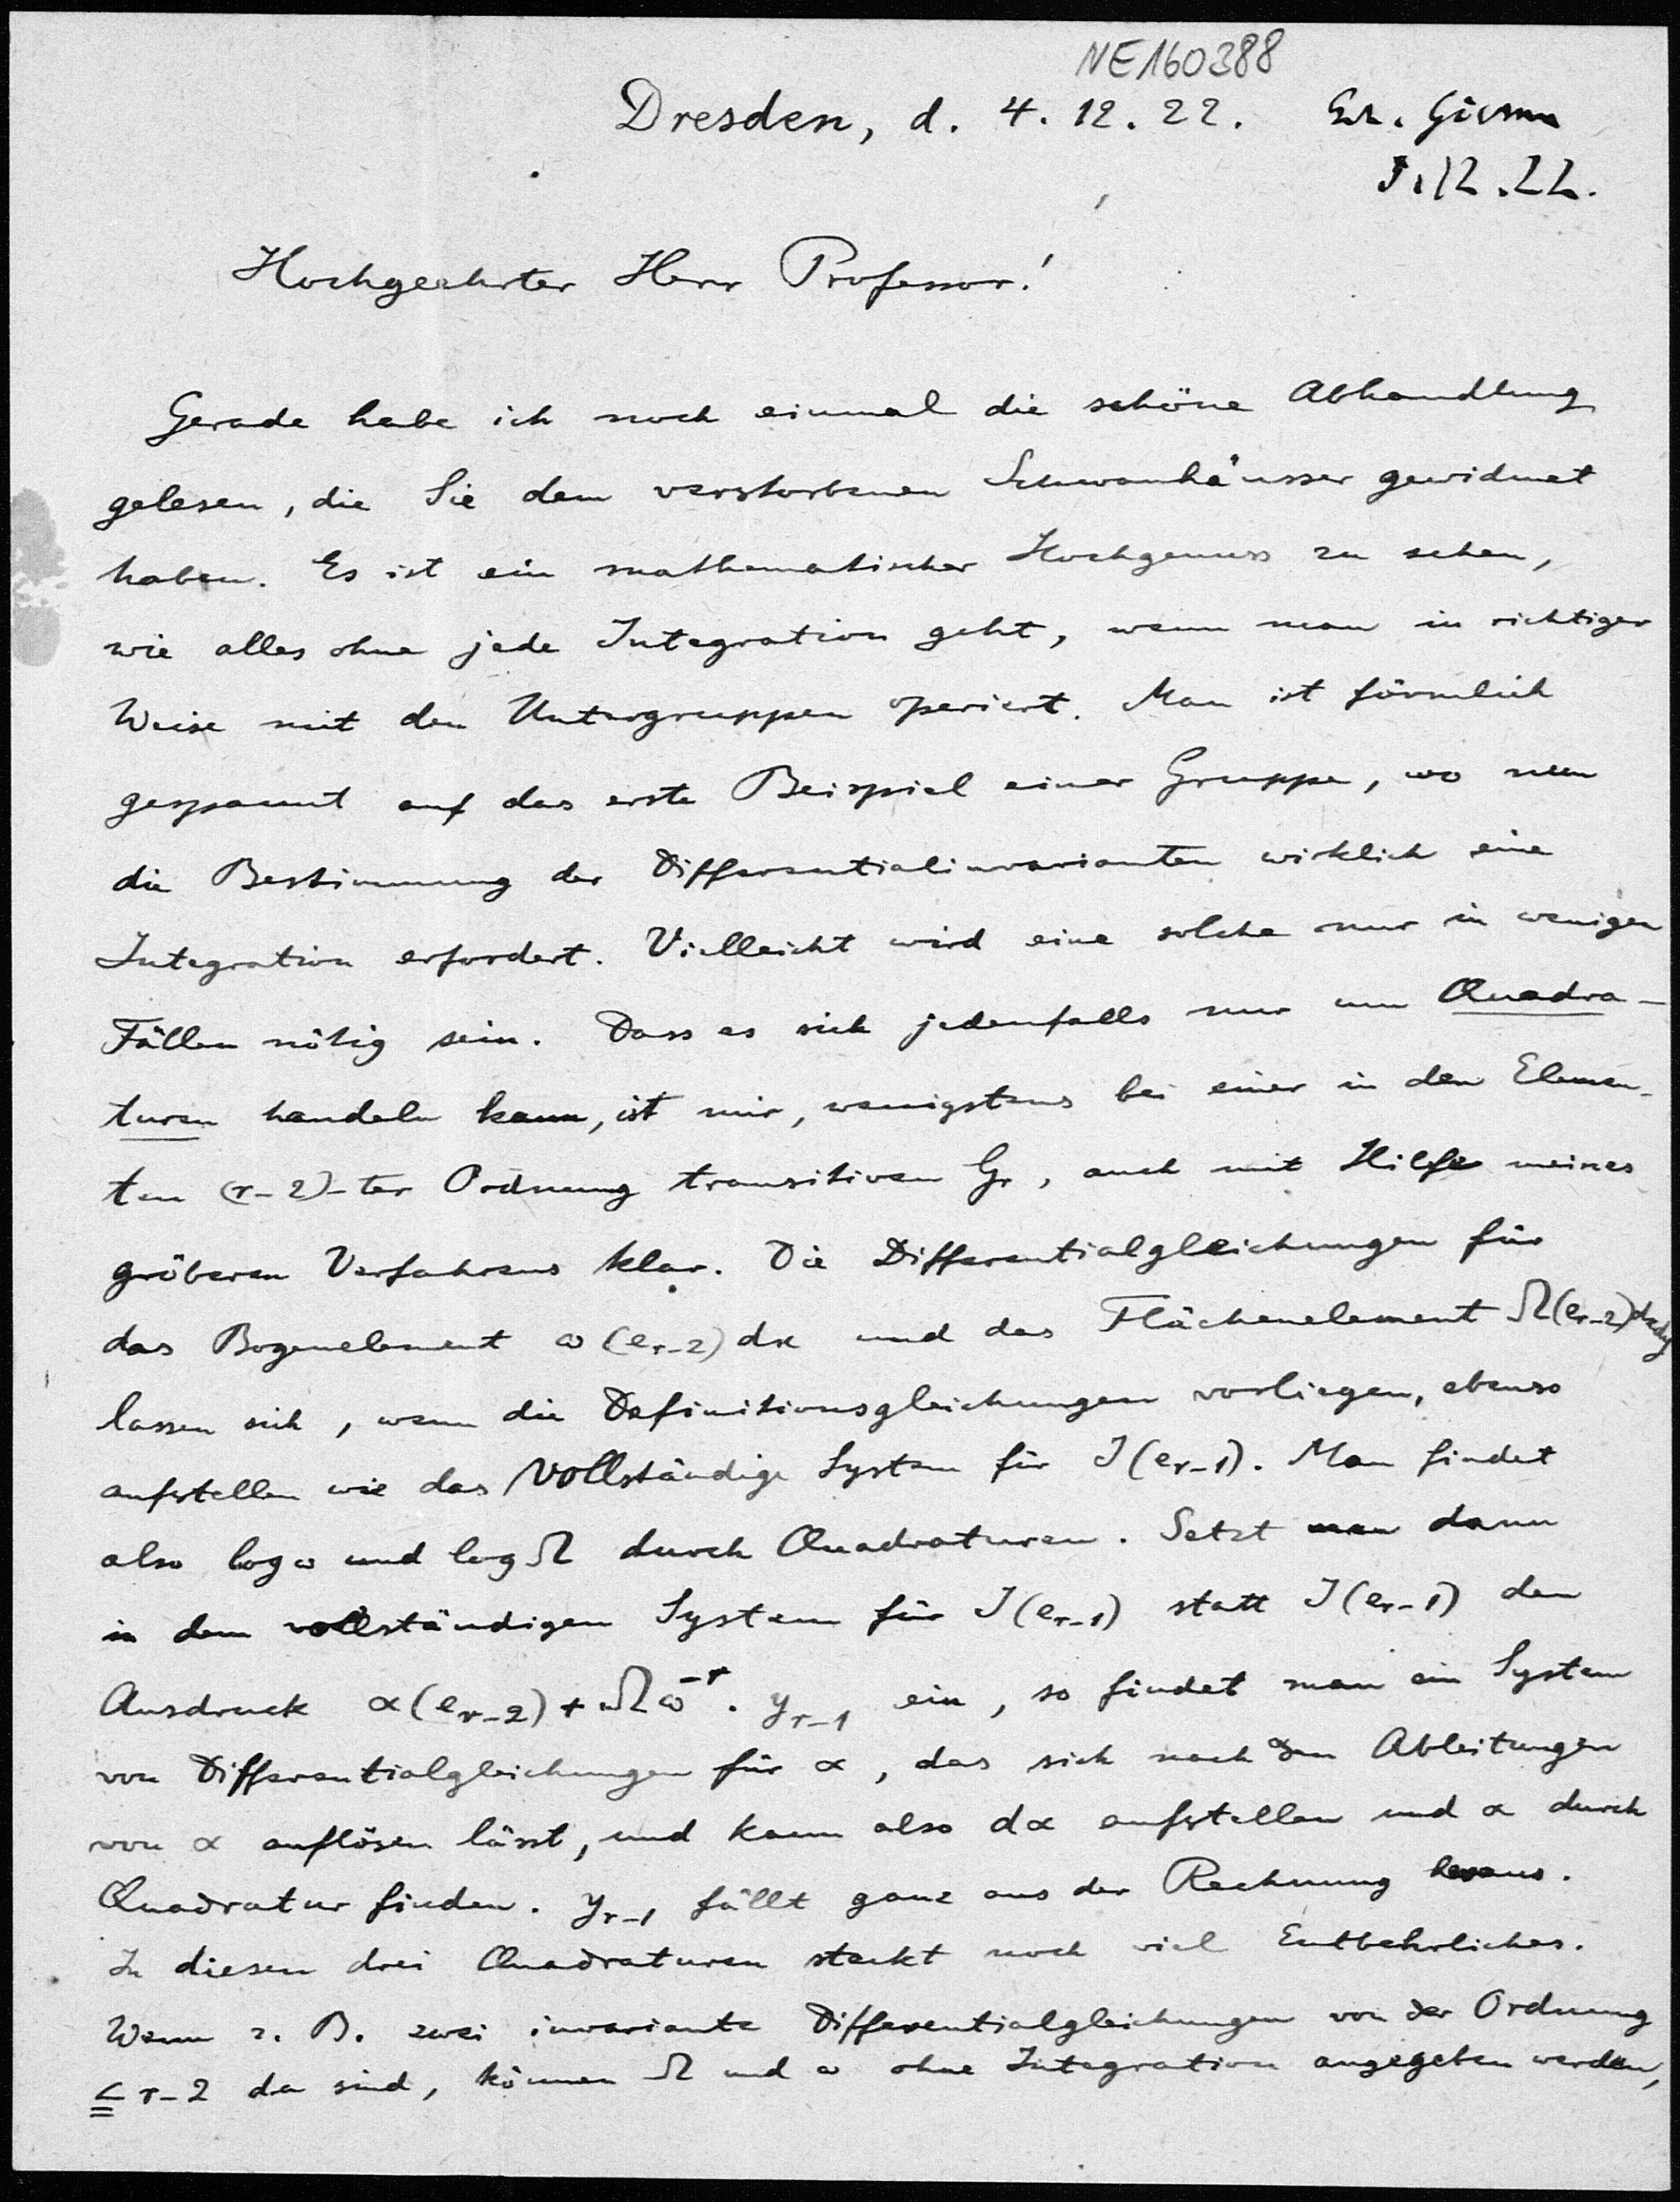 NE160388
Dresden, d. 4. 12. 22.
5.12.22.
Hochgeehrter Herr Professor!
Gerade habe ich noch einmal die schöne Abhandlung
gelesen, die Sie dem verstorbenen Schwanhäusser gewidmet
haben. Es ist ein mathematischer Hochgenuss zu sehen,
wie alles ohne jede Integration geht, wenn man in richtiger
Weise mit den Untergruppen operiert. Man ist förmlich
gespannt auf das erste Beispiel einer Gruppe, wo nun
die Bestimmung der Differentialinvarianten wirklich eine
Integration erfordert. Vielleicht wird eine solche nur in wenigen
Fällen nötig sein. Dass es sich jedenfalls nur um Quadra-
turen handeln kann, ist mir, wenigstens bei einer in den Elemen-
ten (r-2)-ter Ordnung transitiven Gr, auch mit Hilfe meines
gröberen Verfahrens klar. Die Differentialgleichungen für
das Bogenelement ω(e_{r-2})dx und das Flächenelement Ω(e_{r-2})dxdy
lassen sich, wenn die Definitionsgleichungen vorliegen, ebenso
aufstellen wie das vollständige System für J(e_{r-1}). Man findet
also log ω und log Ω durch Quadraturen. Setzt man dann
in dem vollständigen System für J(e_{r-1}) statt J(e_{r-1}) den
Ausdruck α(e_{r-2}) + Ωω^{-r} · y_{r-1} ein, so findet man ein System
von Differentialgleichungen für α, das sich nach den Ableitungen
von α auflösen lässt, und kann also dα aufstellen und α durch
Quadratur finden. y_{r-1} fällt ganz aus der Rechnung heraus.
In diesen drei Quadraturen steckt noch viel Entbehrliches.
Wenn z. B. zwei invariante Differentialgleichungen von der Ordnung
≦ r-2 da sind, können Ω und ω ohne Integration angegeben werden,